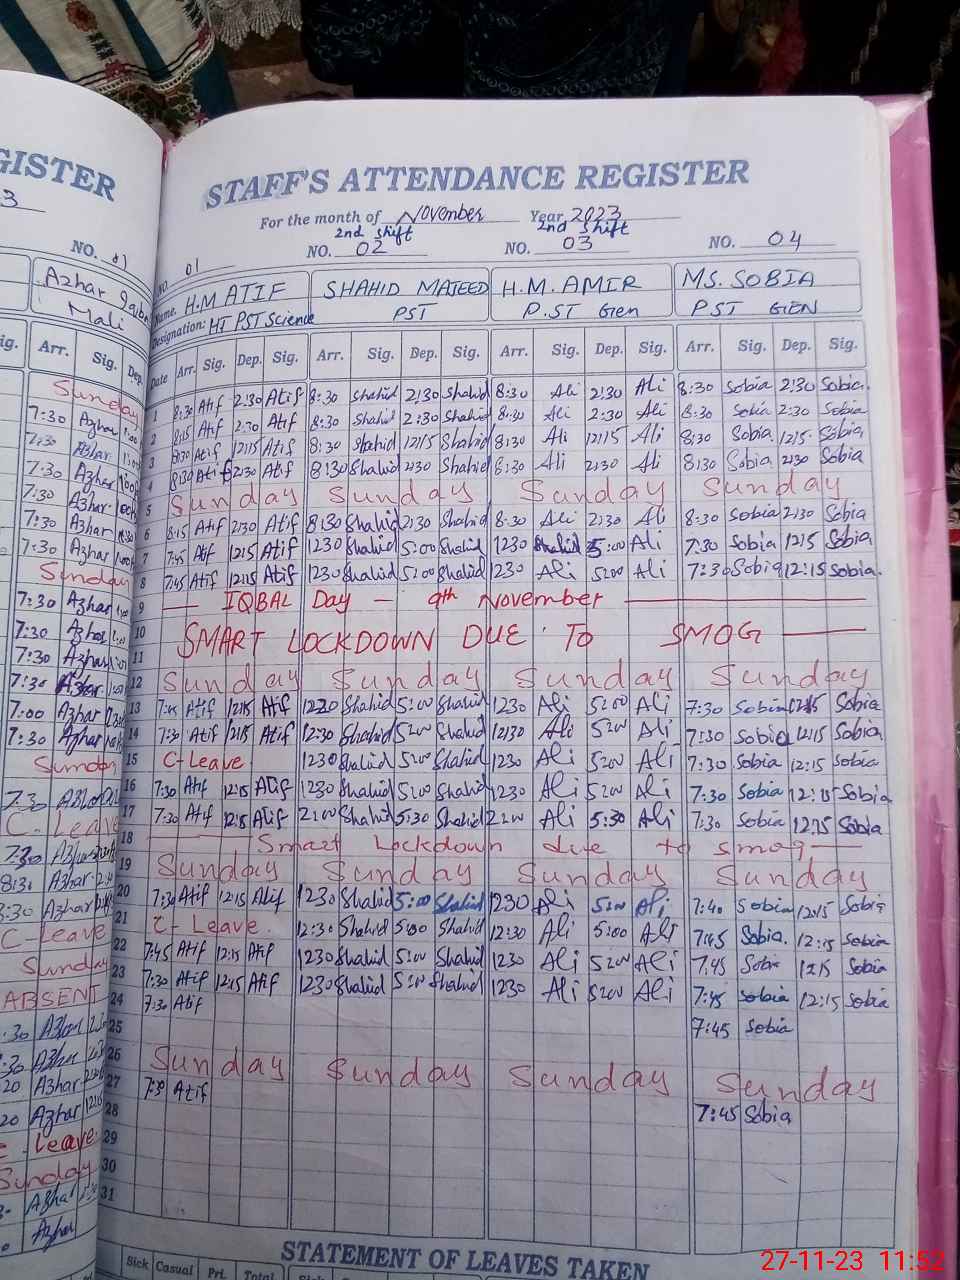 GISTER
3
NO. 01
Azhar
Mali
ig. Arr. Sig. Dep.
Sunday
7:30 Azhar
7:30 Azhar
7:30 Azhar
7:30 Azhar
7:30 Azhar
7:30 Azhar
Sunday
7:30 Azhar
7:30 Azhar
7:30 Azhar
7:30 Azhar
7:00 Azhar
7:30 Azhar
Sunday
7:30
C-Leave
7:30 Azhar
8:30 Azhar
8:30 Azhar
C-Leave
Sunday
ABSENT
:30 Azhar
:30 Azhar
20 Azhar
20 Azhar
Leave
Sunday
Azhar
Azhar
STAFF'S ATTENDANCE REGISTER
For the month of November Year 2023
2nd shift 2nd shift
NO 01 NO. 02 NO. 03 NO. 04
Name. H.M ATIF SHAHID MAJEED H.M. AMIR MS. SOBIA
Designation: HT PST Science PST P.ST Gen PST GEN
Date Arr. Sig. Dep. Sig. Arr. Sig. Dep. Sig. Arr. Sig. Dep. Sig. Arr. Sig. Dep. Sig.
1 8:30 Atif 2:30 Atif 8:30 Shahid 2:30 Shahid 8:30 Ali 2:30 Ali 8:30 Sobia 2:30 Sobia
2 8:15 Atif 2:30 Atif 8:30 Shahid 2:30 Shahid 8:30 Ali 2:30 Ali 8:30 Sobia 2:30 Sobia
3 8:30 Atif 12:15 Atif 8:30 Shahid 12:15 Shahid 8:30 Ali 12:15 Ali 8:30 Sobia 12:15 Sobia
4 8:30 Atif 2:30 Atif 8:30 Shahid 2:30 Shahid 8:30 Ali 2:30 Ali 8:30 Sobia 2:30 Sobia
5 Sunday Sunday Sunday Sunday
6 8:15 Atif 2:30 Atif 8:30 Shahid 2:30 Shahid 8:30 Ali 2:30 Ali 8:30 Sobia 2:30 Sobia
7 7:45 Atif 12:15 Atif 12:30 Shahid 5:00 Shahid 12:30 5:00 Ali 7:30 Sobia 12:15 Sobia
8 7:45 Atif 12:15 Atif 12:30 Shahid 5:00 Shahid 12:30 Ali 5:00 Ali 7:30 Sobia 12:15 Sobia.
9 IQBAL Day - 9th November
10 SMART LOCKDOWN DUE To SMOG
11
12 Sunday Sunday Sunday Sunday
13 7:45 Atif 12:15 Atif 12:30 Shahid 5:00 Shahid 12:30 Ali 5:00 Ali 7:30 Sobia 12:15 Sobia
14 7:30 Atif 12:15 Atif 12:30 Shahid 5:00 Shahid 12:30 Ali 5:00 Ali 7:30 Sobia 12:15 Sobia
15 C-Leave 12:30 Shahid 5:00 Shahid 12:30 Ali 5:00 Ali 7:30 Sobia 12:15 Sobia
16 7:30 Atif 12:15 Atif 12:30 Shahid 5:00 Shahid 12:30 Ali 5:00 Ali 7:30 Sobia 12:15 Sobia
17 7:30 Atif 12:15 Atif 2:00 Shahid 5:30 Shahid 2:00 Ali 5:30 Ali 7:30 Sobia 12:15 Sobia
18 Smart Lockdown due to smog
19 Sunday Sunday Sunday Sunday
20 7:30 Atif 12:15 Atif 12:30 Shahid 5:00 Shahid 12:30 Ali 5:00 Ali 7:40 Sobia 12:15 Sobia
21 C-Leave. 12:30 Shahid 5:00 Shahid 12:30 Ali 5:00 Ali 7:45 Sobia. 12:15 Sobia
22 7:45 Atif 12:15 Atif 12:30 Shahid 5:00 Shahid 12:30 Ali 5:00 Ali 7:45 Sobia 12:15 Sobia
23 7:30 Atif 12:15 Atif 12:30 Shahid 5:00 Shahid 12:30 Ali 5:00 Ali 7:45 Sobia 12:15 Sobia
24 7:30 Atif 7:45 Sobia
25
26 Sunday Sunday Sunday Sunday
27 7:30 Atif 7:45 Sobia
28
29
30
31
STATEMENT OF LEAVES TAKEN
Sick Casual Pri. Total
27-11-23 11:52